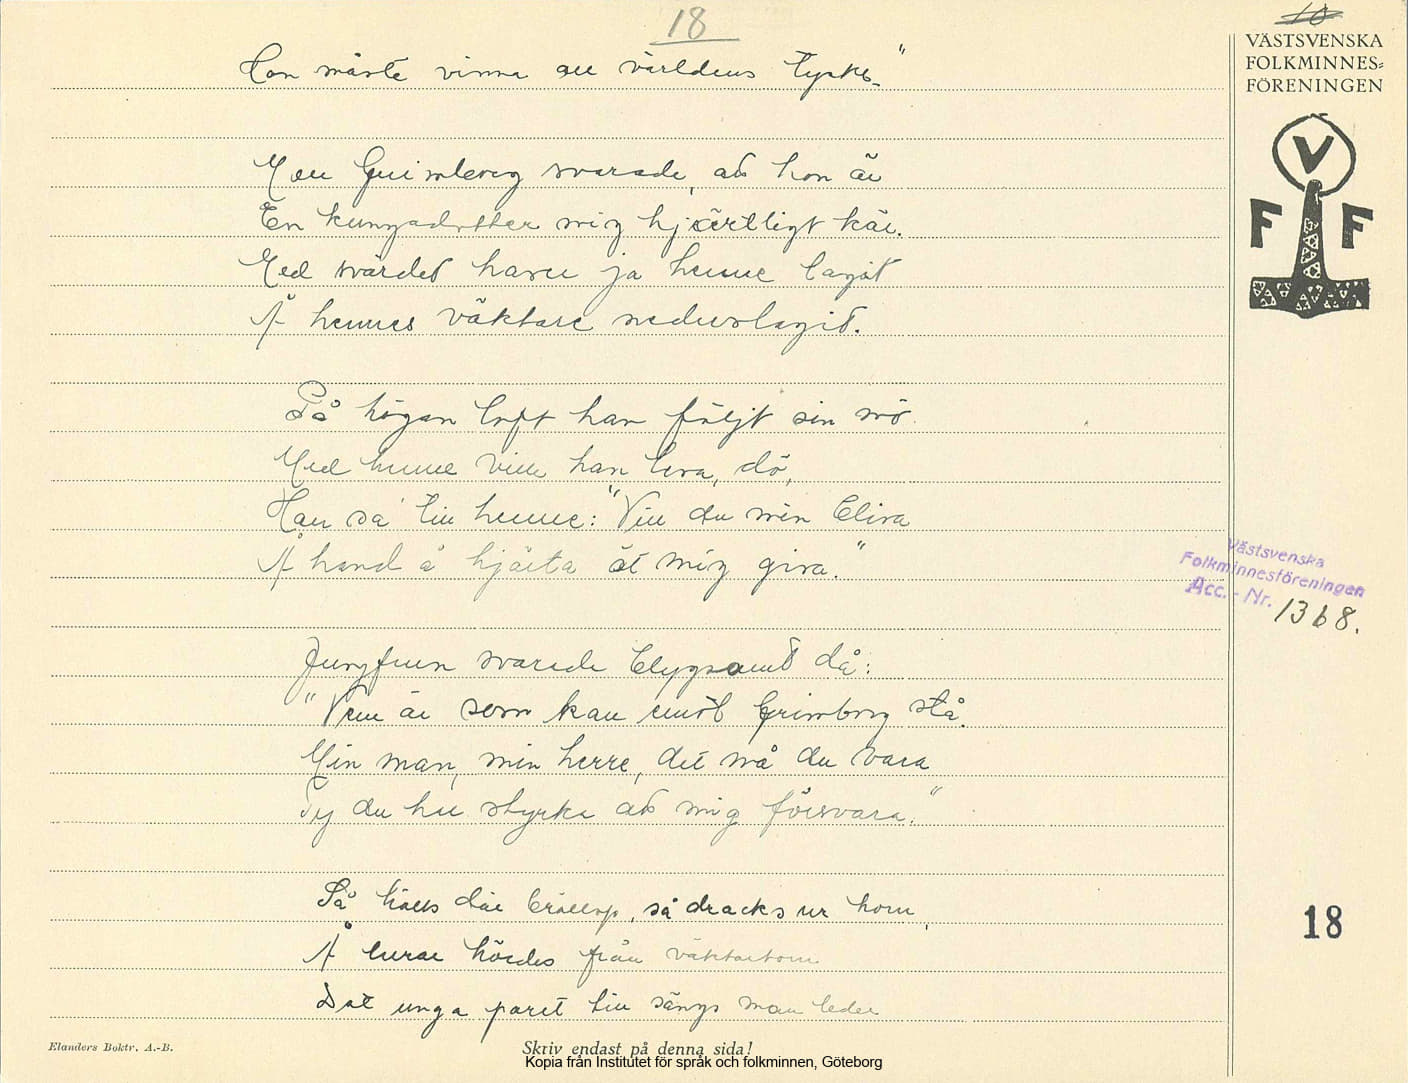 18
Han måste vinna all världens tycke."
Men Grimborg svarade, att hon är
En kungadotter mig hjärtligt kär.
Med svärdet haver ja henne tagit
Å hennes väktare nederslagit.
På högan loft han följt sin mö
Med henne vill han leva, dö,
Han sa' till henne: "Vill du min bliva
Å hand å hjärta åt mig giva."
Jungfrun svarade blygsamt då:
"Vem är som kan emot Grimborg stå.
Min man, min herre, det må du vara
Ty du har styrka att mig försvara."
Så hölls där bröllop, så dracks ur horn,
Å lurar hördes från väktartorn
Det unga paret till sängs man leder
Elanders Boktr. A.-B.
Skriv endast på denna sida!
Kopia från Institutet för språk och folkminnen, Göteborg
VÄSTSVENSKA
FOLKMINNES=
FÖRENINGEN
V
F F
Västsvenska
Folkminnesföreningen
Acc. - Nr. 1368.
18